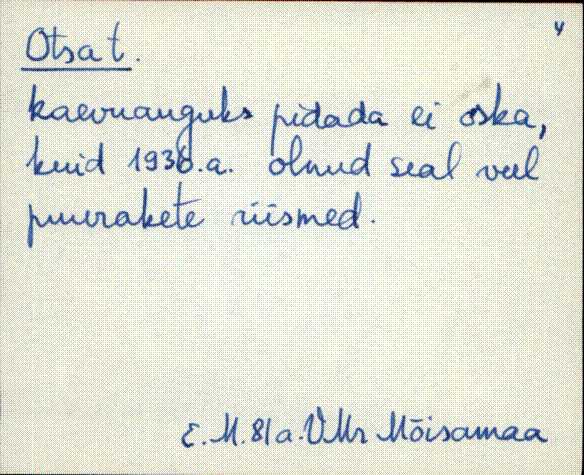 4
Otsa t.
kaevuauguks pidada ei oska,
kuid 1938.a. olnud seal veel
puurakete riismed.
E.M. 81 a. VMr Mõisamaa